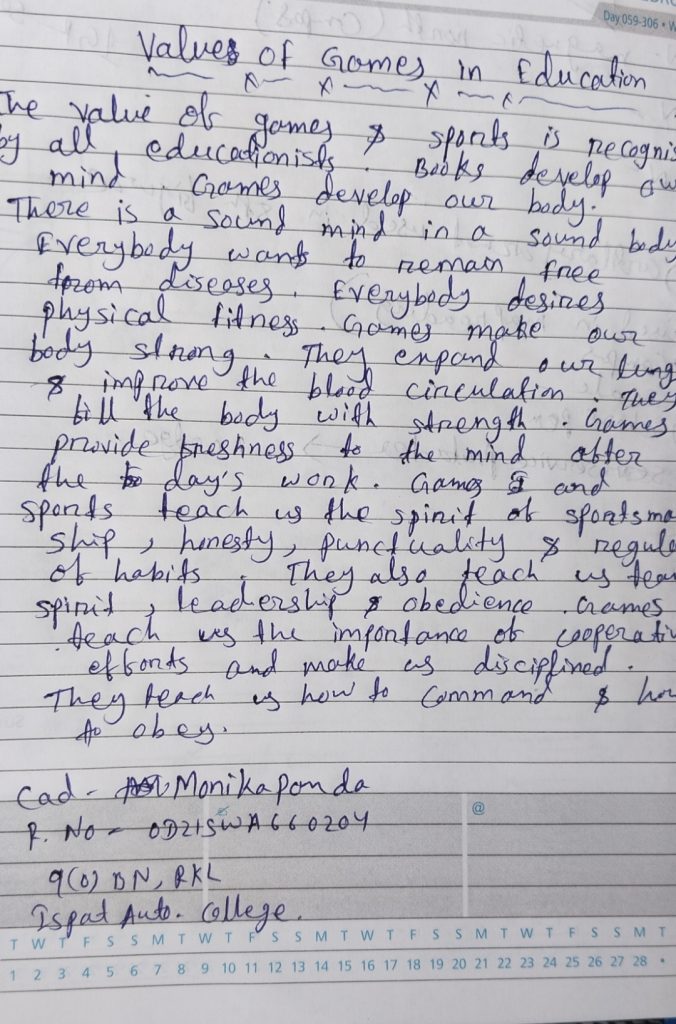 Day 059-306 • W
Values of Games in Education
The value of games & sports is recognis
by all educationists. Books develop ou
mind. Games develop our body.
There is a sound mind in a sound body
Everybody wants to remain free
from diseases. Everybody desires
physical fitness. Games make our
body strong. They expand our lung
& improve the blood circulation. They
fill the body with strength. Games
provide freshness to the mind after
the day's work. Games and
sports teach us the spirit of sportsma
ship, honesty, punctuality & regula
of habits. They also teach us team
spirit, leadership & obedience. Games
teach us the importance of cooperativ
efforts and make us disciplined.
They teach us how to command & how
to obey.
Cad - Monika Panda
R. No - OD21SWA660204
@
9(O) BN, RKL
Ispat Auto. College.
T W T F S S M T W T F S S M T W T F S S M T W T F S S M T
1 2 3 4 5 6 7 8 9 10 11 12 13 14 15 16 17 18 19 20 21 22 23 24 25 26 27 28 •